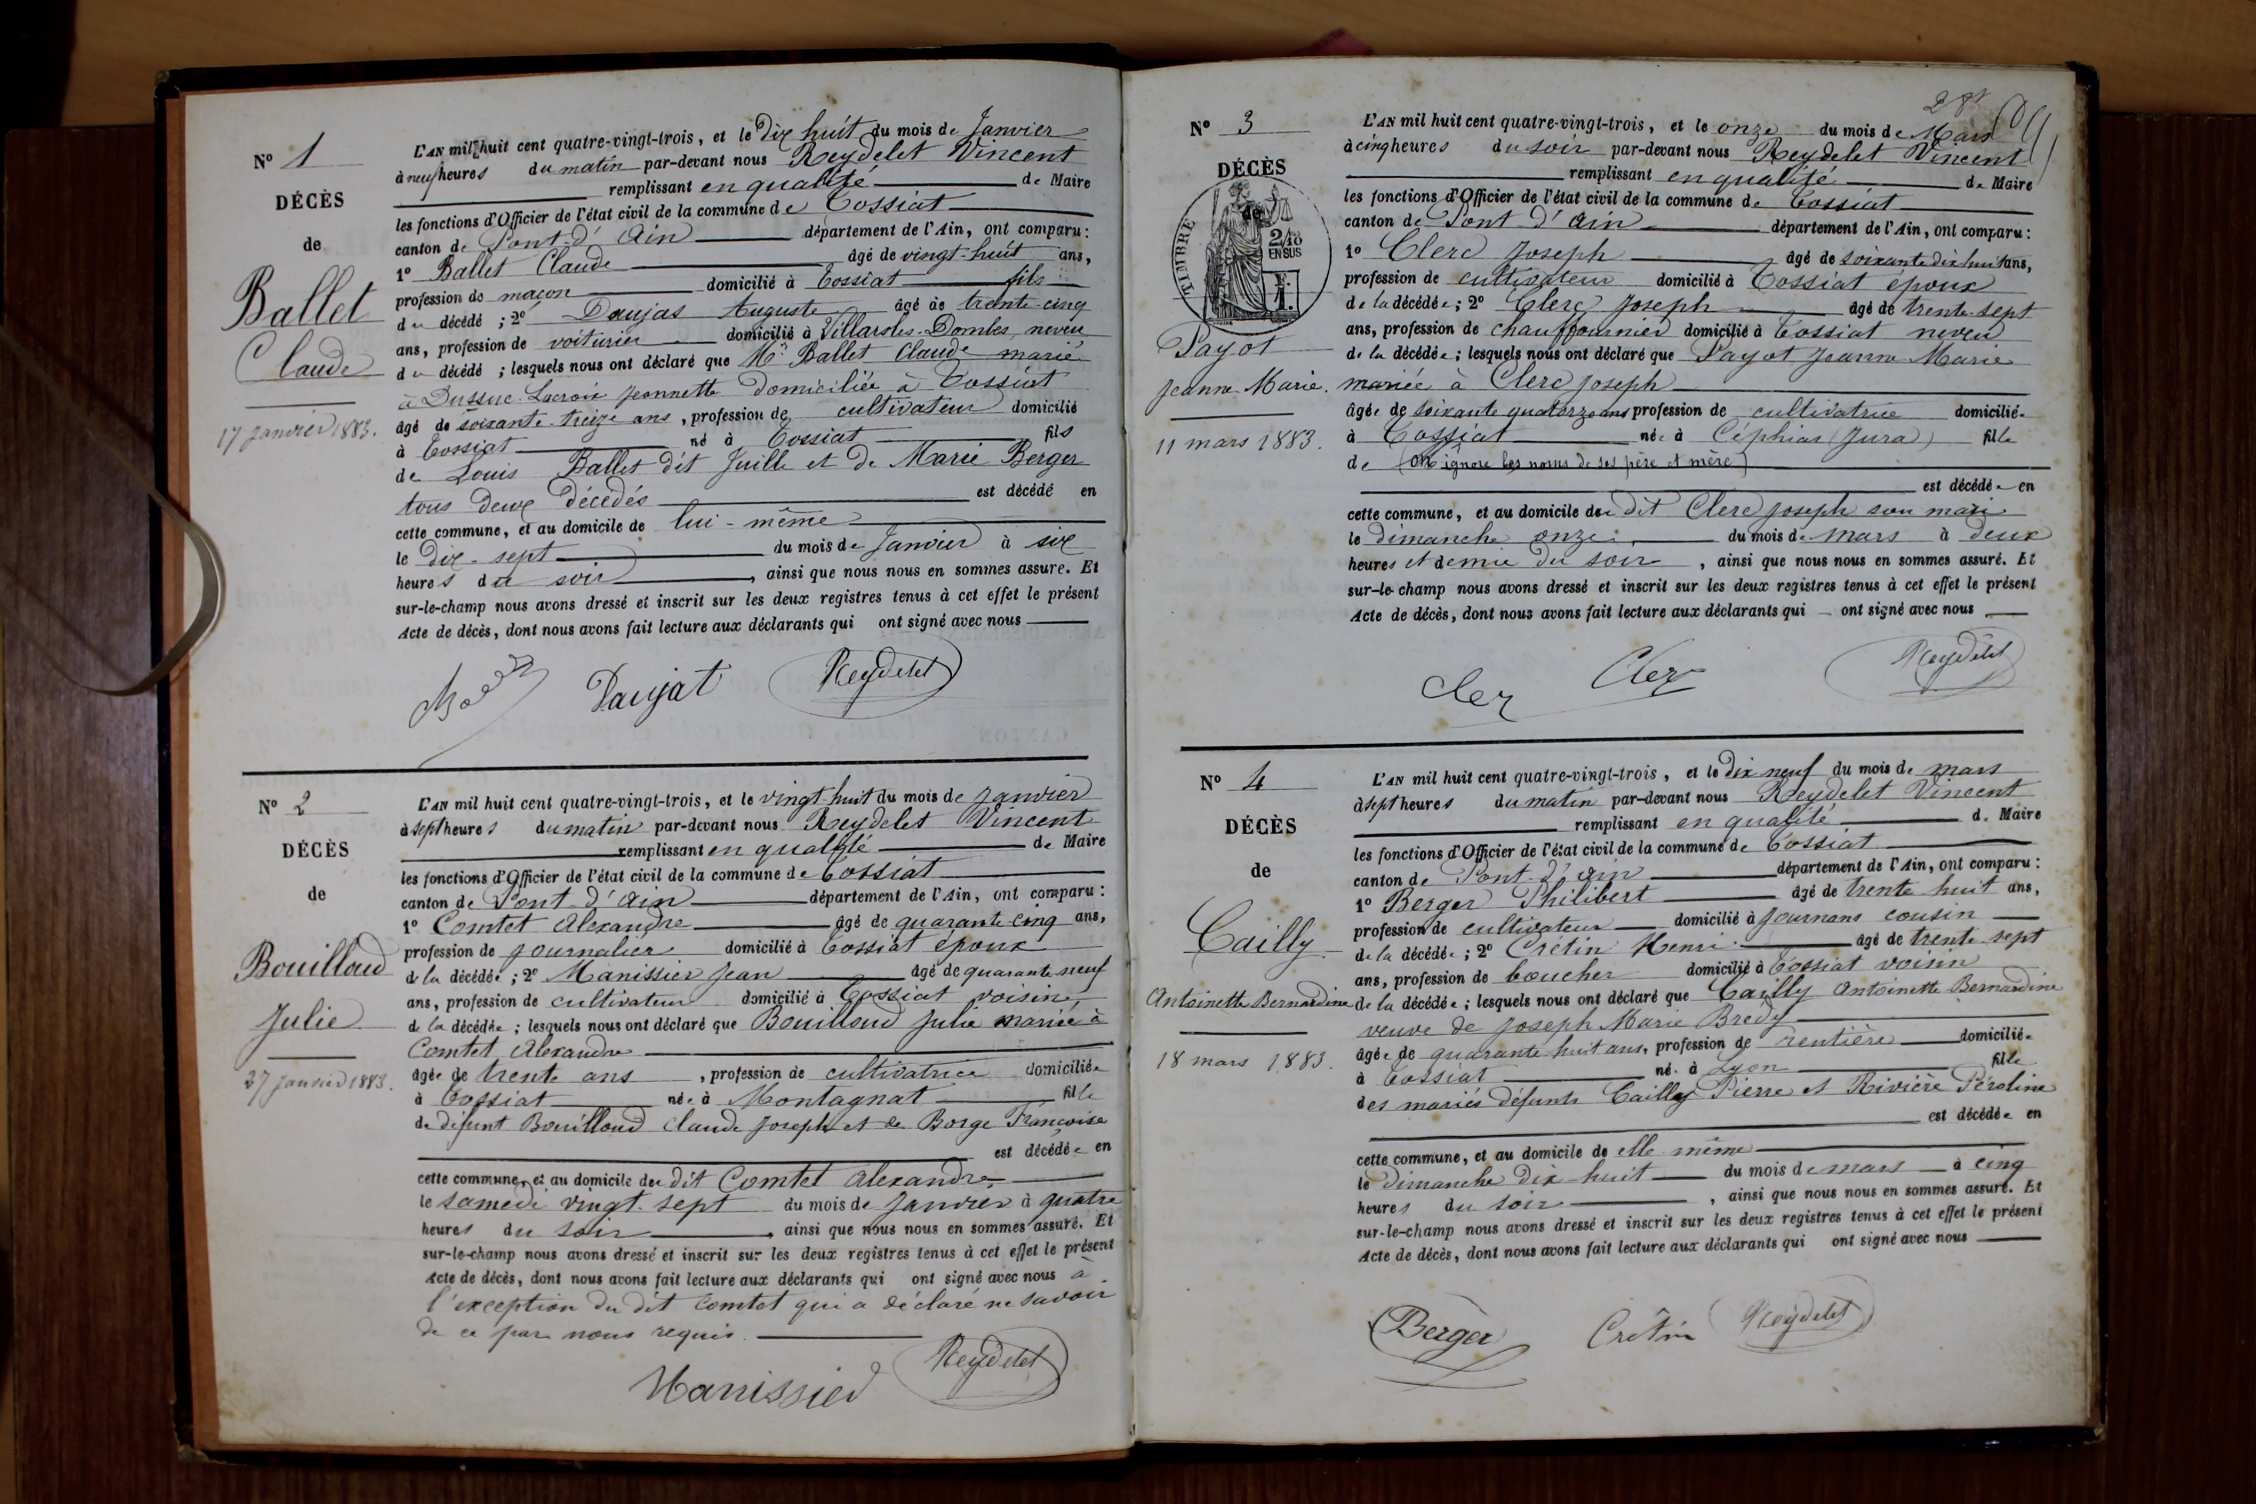 N° 1
DÉCÈS
de
Ballet
Claude
17 Janvier 1883.
L'AN mil huit cent quatre-vingt-trois, et le Dix huit du mois de Janvier
à neuf heures du matin par-devant nous Reydelet Vincent
remplissant en qualité de Maire
les fonctions d'Officier de l'état civil de la commune de Tossiat
canton de Pont d'Ain département de l'Ain, ont comparu :
1° Ballet Claude âgé de vingt-huit ans,
profession de maçon domicilié à Tossiat fils
du décédé ; 2° Daujas Auguste âgé de trente cinq
ans, profession de voiturier domicilié à Villars-les-Dombes, neveu
du décédé ; lesquels nous ont déclaré que Mr Ballet Claude marié
à Dussuc-Lacroix Jeannette Domiciliée à Tossiat
âgé de soixante-treize ans, profession de cultivateur domicilié
à Tossiat né à Tossiat fils
de Louis Ballet dit Juille et de Marie Berger
tous deux Décédés est décédé en
cette commune, et au domicile de lui-même
le Dix-sept du mois de Janvier à six
heures du soir, ainsi que nous nous en sommes assuré. Et
sur-le-champ nous avons dressé et inscrit sur les deux registres tenus à cet effet le présent
Acte de décès, dont nous avons fait lecture aux déclarants qui ont signé avec nous
Daujat Reydelet
N° 2
DÉCÈS
de
Bouilloud
Julie
27 Janvier 1883.
L'AN mil huit cent quatre-vingt-trois, et le vingt-huit du mois de Janvier
à sept heures du matin par-devant nous Reydelet Vincent
remplissant en qualité de Maire
les fonctions d'Officier de l'état civil de la commune de Tossiat
canton de Pont d'Ain département de l'Ain, ont comparu :
1° Comtet Alexandre âgé de quarante cinq ans,
profession de journalier domicilié à Tossiat époux
de la décédée ; 2° Manissier Jean âgé de quarante neuf
ans, profession de cultivateur domicilié à Tossiat voisin
de la décédée ; lesquels nous ont déclaré que Bouilloud Julie mariée à
Comtet Alexandre
âgée de trente ans, profession de cultivatrice domiciliée
à Tossiat née à Montagnat fille
de défunt Bouilloud Claude Joseph et de Borge Françoise
est décédée en
cette commune, et au domicile du dit Comtet Alexandre
le samedi vingt-sept du mois de Janvier à quatre
heures du soir, ainsi que nous nous en sommes assuré. Et
sur-le-champ nous avons dressé et inscrit sur les deux registres tenus à cet effet le présent
Acte de décès, dont nous avons fait lecture aux déclarants qui ont signé avec nous à
l'exception du dit Comtet qui a déclaré ne savoir
de ce par nous requis.
Manissier Reydelet
28
N° 3
DÉCÈS
de
TIMBRE
2/10
EN SUS
Payot
Jeanne Marie.
11 mars 1883.
L'AN mil huit cent quatre-vingt-trois, et le onze du mois de Mars
à cinq heures du soir par-devant nous Reydelet Vincent
remplissant en qualité de Maire
les fonctions d'Officier de l'état civil de la commune de Tossiat
canton de Pont d'Ain département de l'Ain, ont comparu :
1° Clerc Joseph âgé de soixante dix huit ans,
profession de cultivateur domicilié à Tossiat époux
de la décédée ; 2° Clerc Joseph âgé de trente-sept
ans, profession de chauffournier domicilié à Tossiat neveu
de la décédée ; lesquels nous ont déclaré que Payot Jeanne Marie
mariée à Clerc Joseph
âgée de soixante quatorze ans profession de cultivatrice domiciliée
à Tossiat née à Céphias (Jura) fille
de (on ignore les noms de ses père et mère)
est décédée en
cette commune, et au domicile du dit Clerc Joseph son mari
le dimanche onze du mois de mars à deux
heures et demie du soir, ainsi que nous nous en sommes assuré. Et
sur-le-champ nous avons dressé et inscrit sur les deux registres tenus à cet effet le présent
Acte de décès, dont nous avons fait lecture aux déclarants qui ont signé avec nous
Cler Clerc Reydelet
N° 4
DÉCÈS
de
Cailly
Antoinette Bernardine
18 mars 1883.
L'AN mil huit cent quatre-vingt-trois, et le Dix neuf du mois de mars
à sept heures du matin par-devant nous Reydelet Vincent
remplissant en qualité de Maire
les fonctions d'Officier de l'état civil de la commune de Tossiat
canton de Pont d'Ain département de l'Ain, ont comparu :
1° Berger Philibert âgé de trente huit ans,
profession de cultivateur domicilié à Journans cousin
de la décédée ; 2° Crétin Henri âgé de trente-sept
ans, profession de boucher domicilié à Tossiat voisin
de la décédée ; lesquels nous ont déclaré que Cailly Antoinette Bernardine
veuve de Joseph Marie Bredy
âgée de quarante huit ans, profession de rentière domiciliée
à Tossiat née à Lyon fille
des mariés défunts Cailly Pierre et Rivière Péroline
est décédée en
cette commune, et au domicile de elle même
le dimanche Dix-huit du mois de mars à cinq
heures du soir, ainsi que nous nous en sommes assuré. Et
sur-le-champ nous avons dressé et inscrit sur les deux registres tenus à cet effet le présent
Acte de décès, dont nous avons fait lecture aux déclarants qui ont signé avec nous
Berger Crétin Reydelet